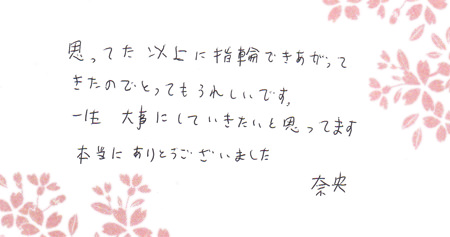 思ってた以上に指輪できあがって
きたのでとってもうれしいです。
一生大事にしていきたいと思ってます
本当にありがとうございました
奈央